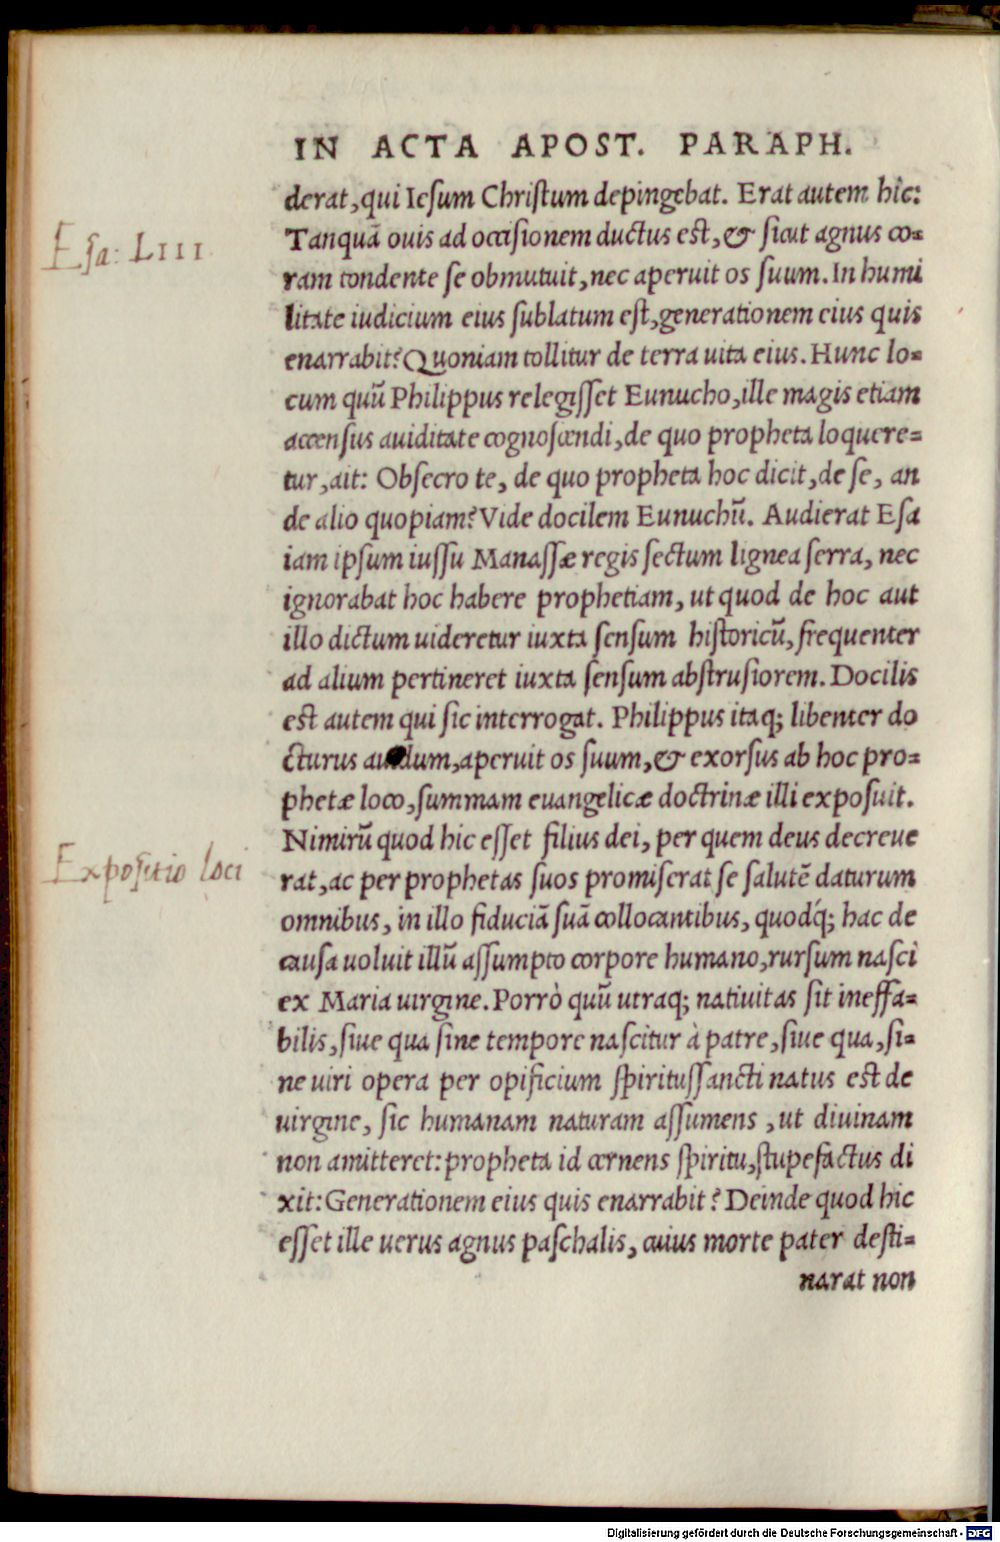 IN ACTA APOST. PARAPH.
derat, qui Iesum Christum depingebat. Erat autem hîc:
Esa: LIII
Tanquā ouis ad occisionem ductus est, & sicut agnus co=
ram tondente se obmutuit, nec aperuit os suum. In humi
litate iudicium eius sublatum est, generationem eius quis
enarrabit? Quoniam tollitur de terra uita eius. Hunc lo=
cum quū Philippus relegisset Eunucho, ille magis etiam
accensus auiditate cognoscendi, de quo propheta loquere=
tur, ait: Obsecro te, de quo propheta hoc dicit, de se, an
de alio quopiam? Vide docilem Eunuchū. Audierat Esa
iam ipsum iussu Manassæ regis sectum lignea serra, nec
ignorabat hoc habere prophetiam, ut quod de hoc aut
illo dictum uideretur iuxta sensum historicū, frequenter
ad alium pertineret iuxta sensum abstrusiorem. Docilis
est autem qui sic interrogat. Philippus itaq; libenter do
cturus auidum, aperuit os suum, & exorsus ab hoc pro=
phetæ loco, summam euangelicæ doctrinæ illi exposuit.
Nimirū quod hic esset filius dei, per quem deus decreue
Expositio loci
rat, ac per prophetas suos promiserat se salutē daturum
omnibus, in illo fiduciā suā collocantibus, quodq́; hac de
causa uoluit illū assumpto corpore humano, rursum nasci
ex Maria uirgine. Porrò quū utraq; natiuitas sit ineffa=
bilis, siue qua sine tempore nascitur à patre, siue qua, si=
ne uiri opera per opificium spiritussancti natus est de
uirgine, sic humanam naturam assumens, ut diuinam
non amitteret: propheta id cernens spiritu, stupefactus di
xit: Generationem eius quis enarrabit? Deinde quod hic
esset ille uerus agnus paschalis, cuius morte pater desti=
narat non
Digitalisierung gefördert durch die Deutsche Forschungsgemeinschaft - DFG